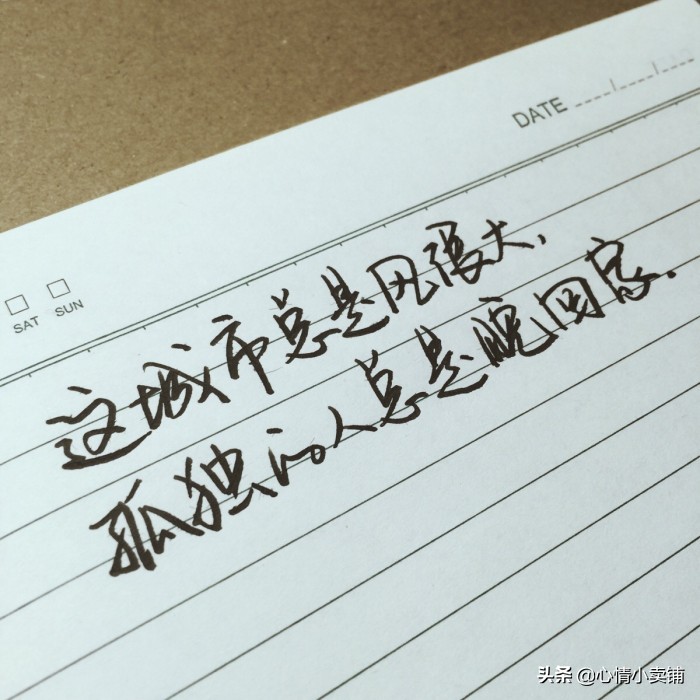 DATE ----/----/----
SAT SUN
这城市总是风很大,
孤独的人总是晚回家.
头条 @心情小卖铺